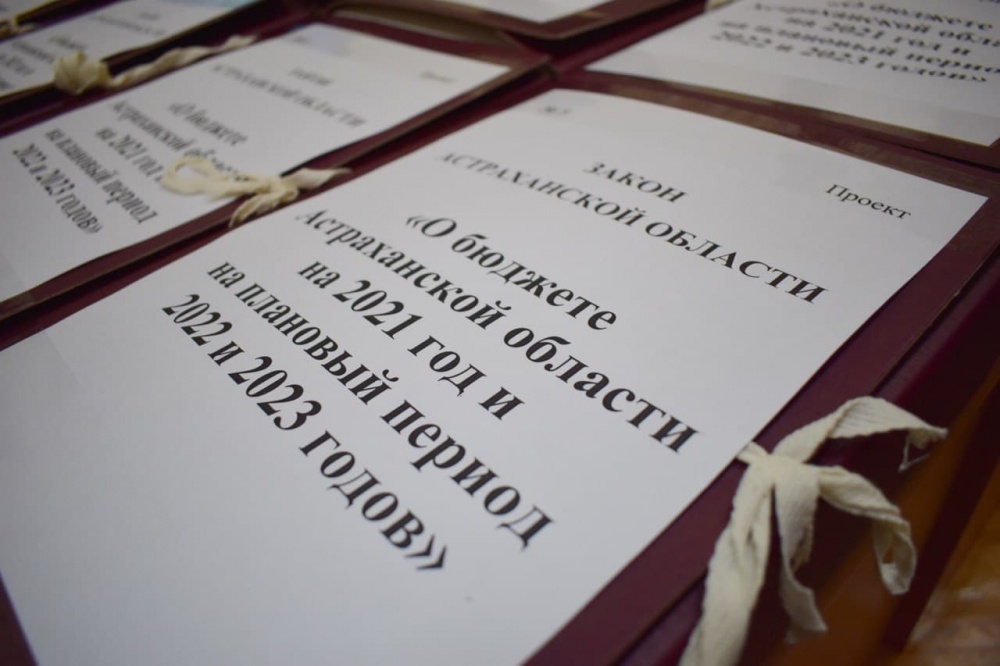 Проект
ЗАКОН
АСТРАХАНСКОЙ ОБЛАСТИ
«О бюджете
Астраханской области
на 2021 год и
на плановый период
2022 и 2023 годов»
Проект
ЗАКОН
АСТРАХАНСКОЙ ОБЛАСТИ
«О бюджете
Астраханской
на 2021 год
на плановый период
2022 и 2023 годов»
«О бюджете
Астраханской обла
на 2021 год и
на плановый перио
2022 и 2023 годов»